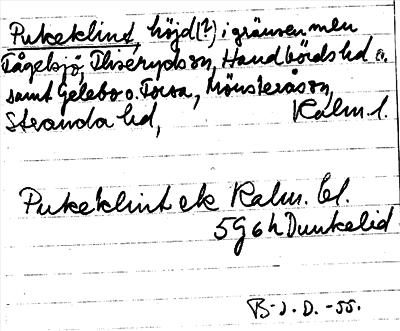 Pukeklint, höjd(?) i gränsen mellan
Fågelsjö, Fliseryds sn, Handbörds hd o.
samt Gelebo o. Forsa, Mönsterås sn,
Stranda hd, Kalm. l.
Pukeklint ek Kalm. bl.
5G6h Dunkelid
B-J.D.-55.